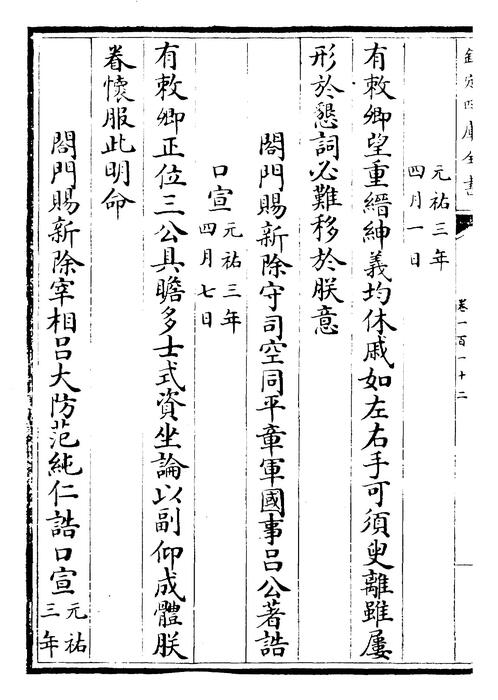 欽定四庫全書
卷一百一十二
元祐三年
四月一日
有敕卿望重縉紳義均休戚如左右手可須臾離雖屢
形於懇詞必難移於朕意
閤門賜新除守司空同平章軍國事呂公著誥
口宣元祐三年
四月七日
有敕卿正位三公具瞻多士式資坐論以副仰成體朕
眷懷服此明命
閤門賜新除宰相呂大防范純仁誥口宣元祐
三年